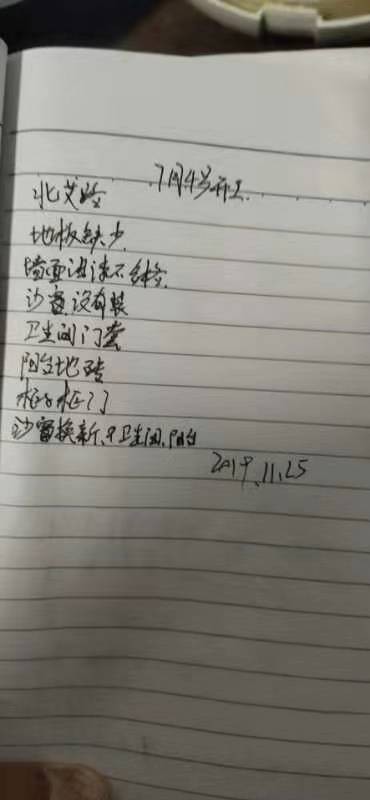 7月4号开工
北艾路
地板缺少
墙面油漆不合格
沙窗没有装
卫生间门套
阳台地砖
柜子柜门
沙窗换新、卫生间、阳台
2019.11.25